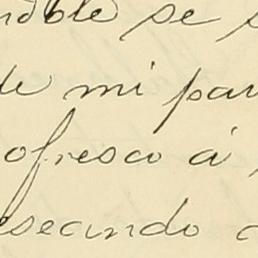 ndole se s
de mi par
ofresco á
eseando a